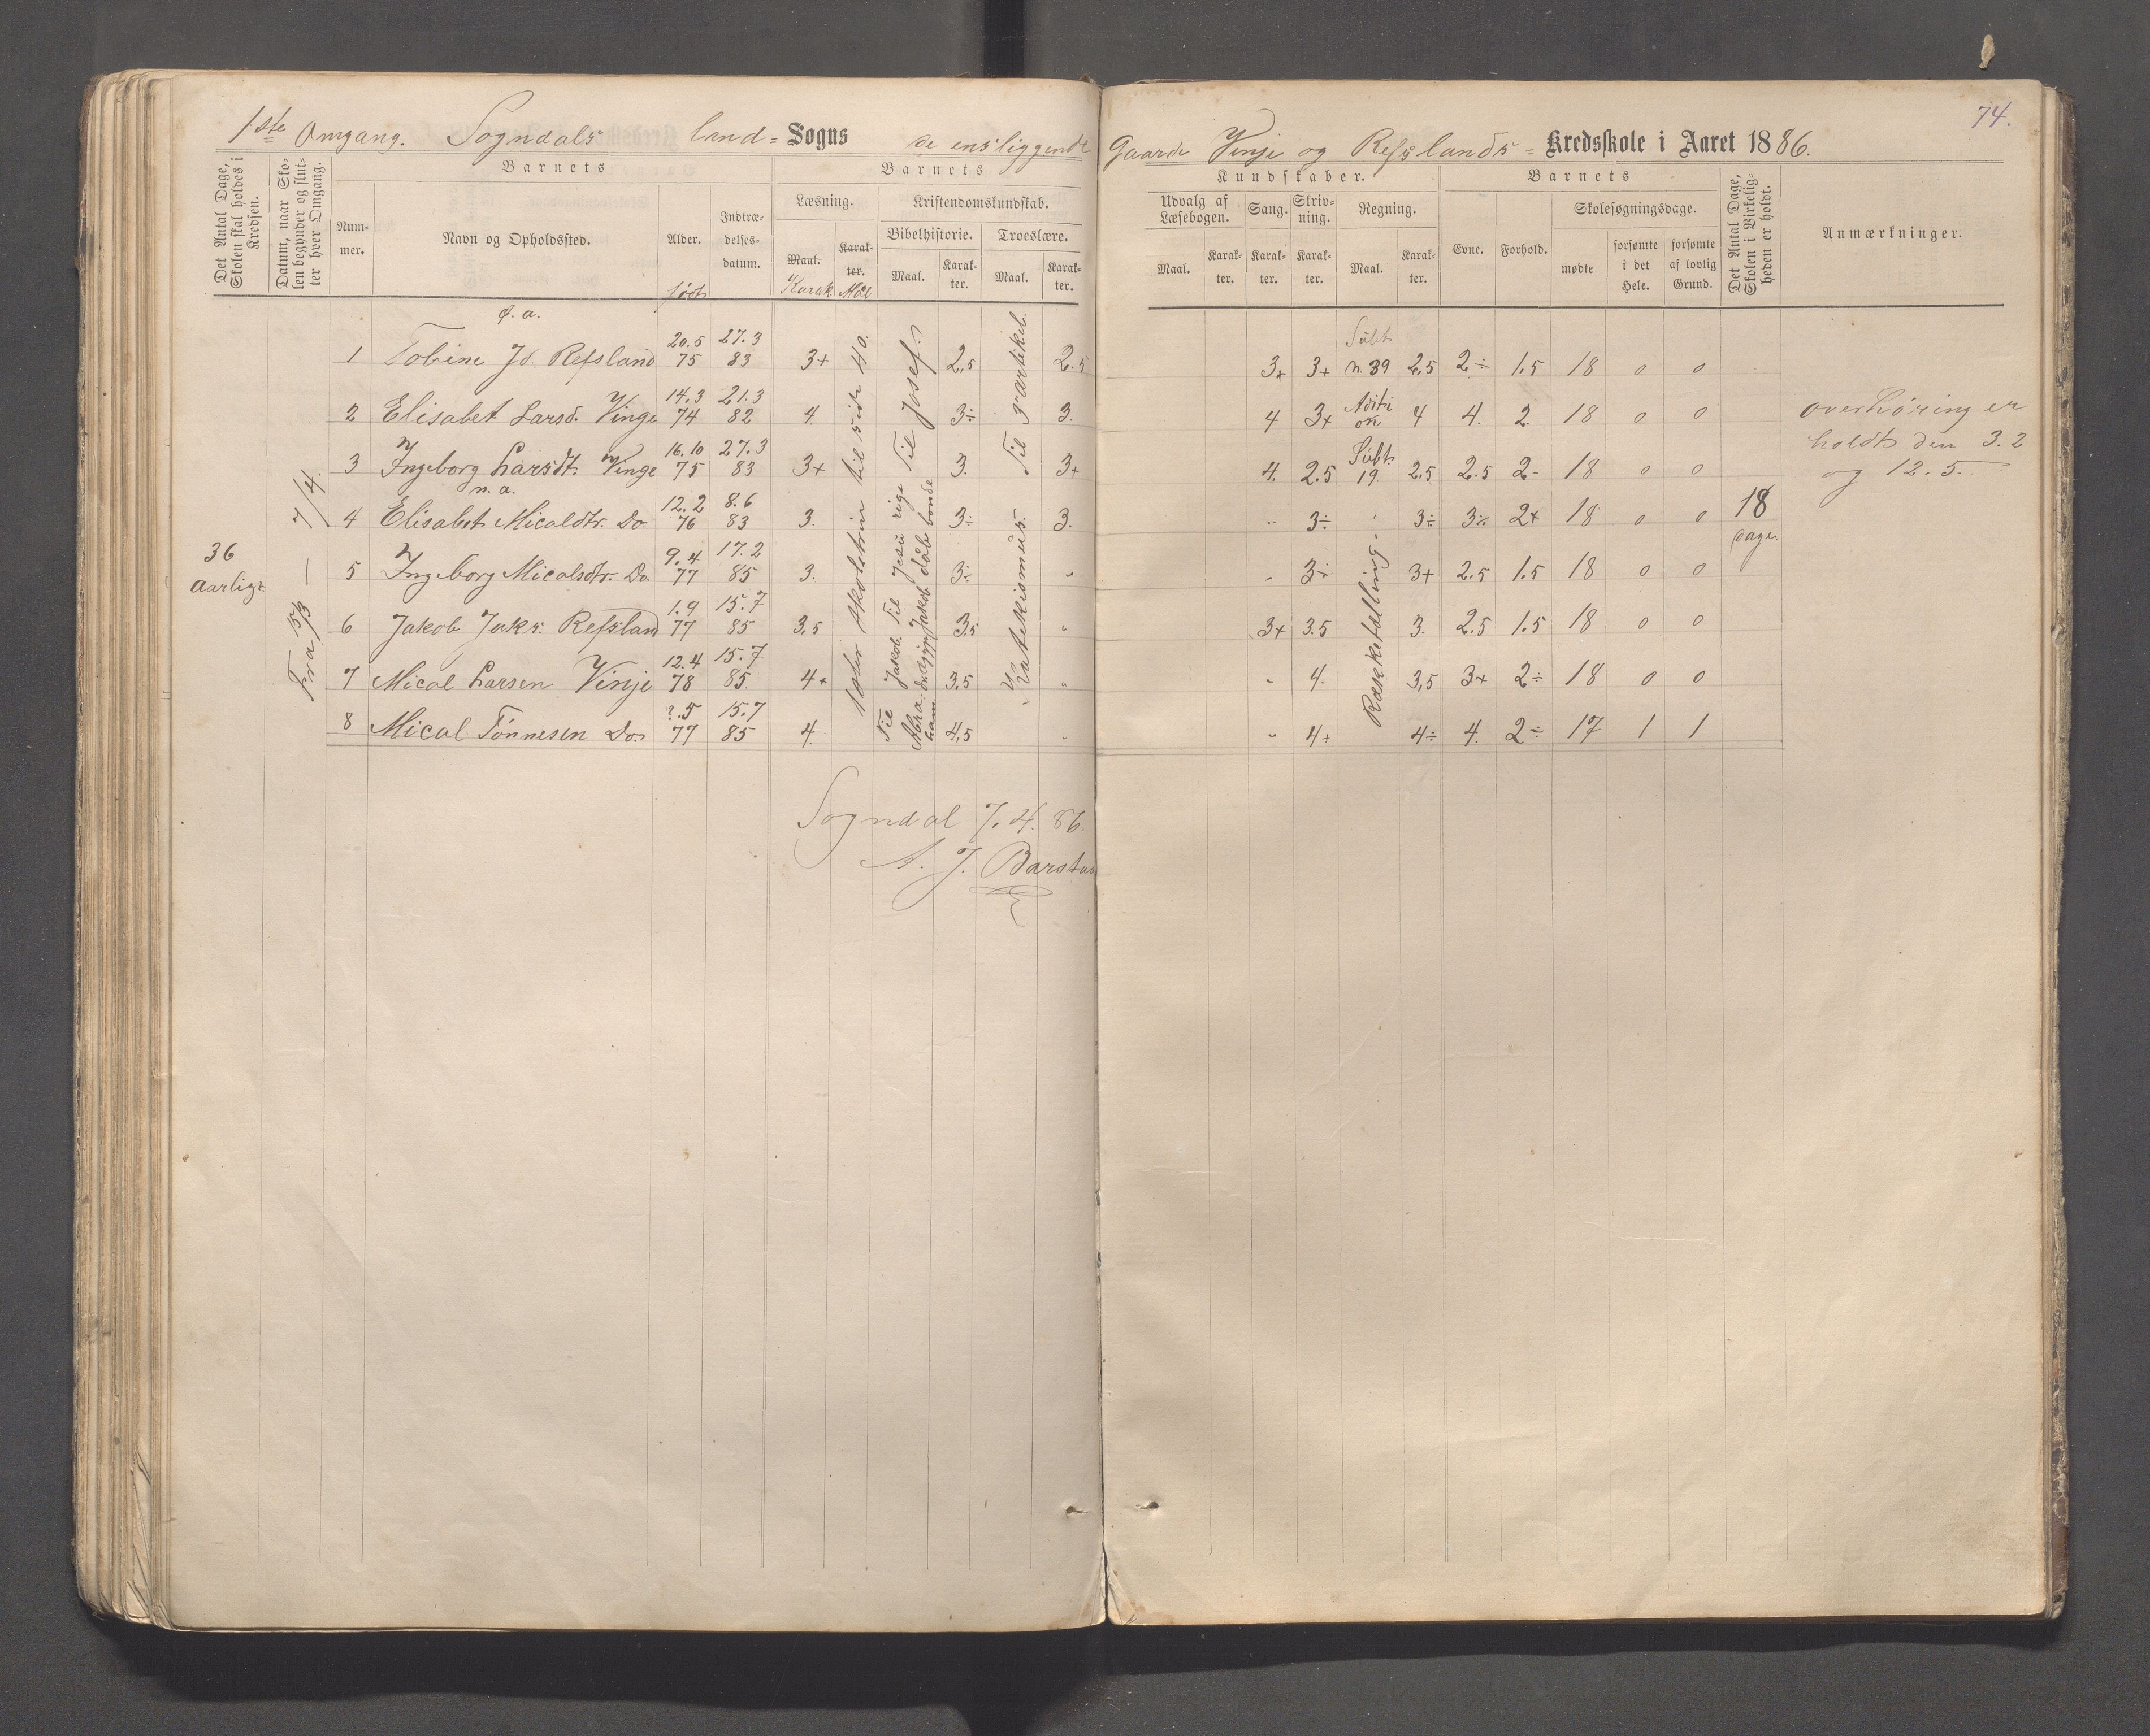 74.
1ste Omgang. Sogndals land = Sogns de ensliggende Gaarde Vinje og Refslands = Kredsskole i Aaret 1886.
Det Antal Dage, Skolen skal holdes i Kredsen.
Datum, naar Skolen begynder og slutter hver Omgang.
Barnets
Nummer.
Navn og Opholdssted.
Alder. født
Indtrædelsesdatum.
Barnets
Læsning.
Maal. Karak.
Karakter. Mål
Kristendomskundskab.
Bibelhistorie.
Maal.
Karakter.
Troeslære.
Maal.
Karakter.
Kundskaber.
Udvalg af Læsebogen.
Maal.
Karakter.
Sang.
Karakter.
Skrivning.
Karakter.
Regning.
Maal.
Karakter.
Barnets
Evne.
Forhold.
Skolesøgningsdage.
mødte
forsømte i det Hele.
forsømte af lovlig Grund.
Det Antal Dage, Skolen i Virkeligheden er holdt.
Anmærkninger.
ø. a.
1 Tobine Jd. Refsland 20.5 75 27.3 83 3+ 2,5 2.5 3+ 3+ Subt. n. 39 2,5 2÷ 1.5 18 0 0
2 Elisabet Larsd. Vinge 14.3 74 21.3 82 4 3÷ 3. 4 3+ Aditi on 4 4. 2. 18 0 0
3 Ingeborg Larsdt. Vinge 16.10 75 27.3 83 3+ 3. 3+ 4. 2.5 Subt. 19. 2.5 2.5 2- 18 0 0
n. a.
4 Elisabet Micaldtr. Do. 12.2 76 8.6 83 3. 3÷ 3. " 3÷ 3÷ 3÷ 2+ 18 0 0
5 Ingeborg Micalsdtr. Do. 9.4 77 17.2 85 3. 3÷ " " 3÷ 3+ 2.5 1.5 18 0 0
6 Jakob Jaks. Refsland 1.9 77 15.7 85 3,5 3.5 " 3+ 3.5 3. 2.5 1.5 18 0 0
7 Mical Larsen Vinje 12.4 78 15.7 85. 4+ 3.5 " " 4. 3,5 3+ 2÷ 18 0 0
8 Mical Tönnesen Do. ?.5 77 15.7 85 4. 4,5 " " 4+ 4÷ 4. 2÷ 17 1 1
36 aarligt.
Fra 15/3 — 7/4.
til side 40.
Til Josef.
Til Jesu rige
Til Jakob
Abraham
Jakob
Til 3 artikel.
Katekismus.
Rækketælling.
18 dage.
overhøring er
holdt den 3.2
og 12.5.
Sogndal 7.4. 86.
A. J. Barstad